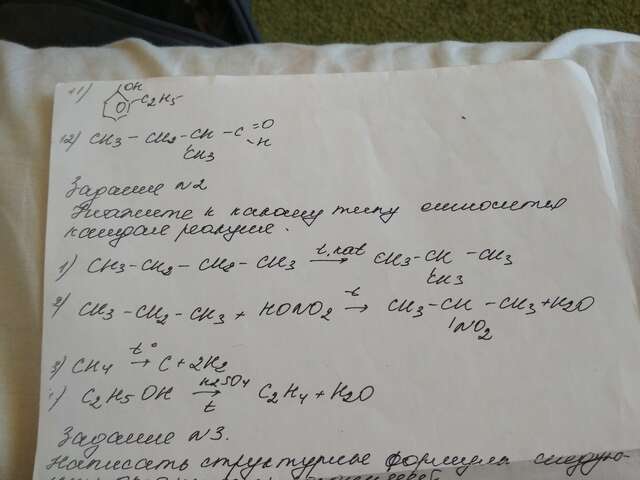 11) OH C2H5
12) CH3 – CH2 – CH – C =O –H
CH3
Задание N2
Укажите к какому типу относится
каждая реакция.
1) CH3–CH2 – CH2 – CH3 t, kat → CH3–CH –CH3
CH3
2) CH3 –CH2 –CH3 + HONO2 t → CH3 – CH – CH3 + H2O
NO2
3) CH4 t° → C + 2H2
C2H5OH H2SO4 → t C2H4 + H2O
Задание N3.
Написать структурные формулы следую-